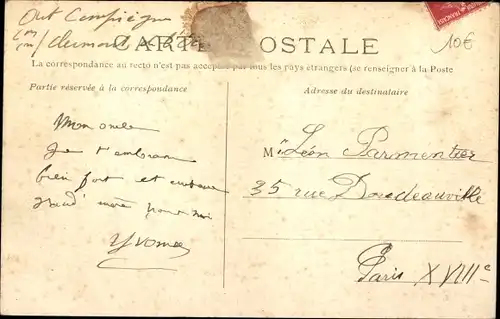 10€
CARTE POSTALE
La correspondance au recto n'est pas acceptée par tous les pays étrangers (se renseigner à la Poste
Partie réservée à la correspondance
Adresse du destinataire
Mon oncle
Je t'embrasse
bien fort et embrasse
grand' mère pour moi
Yvonne
M. Léon Parmentier
35 rue Doudeauville
Paris XVIIIe